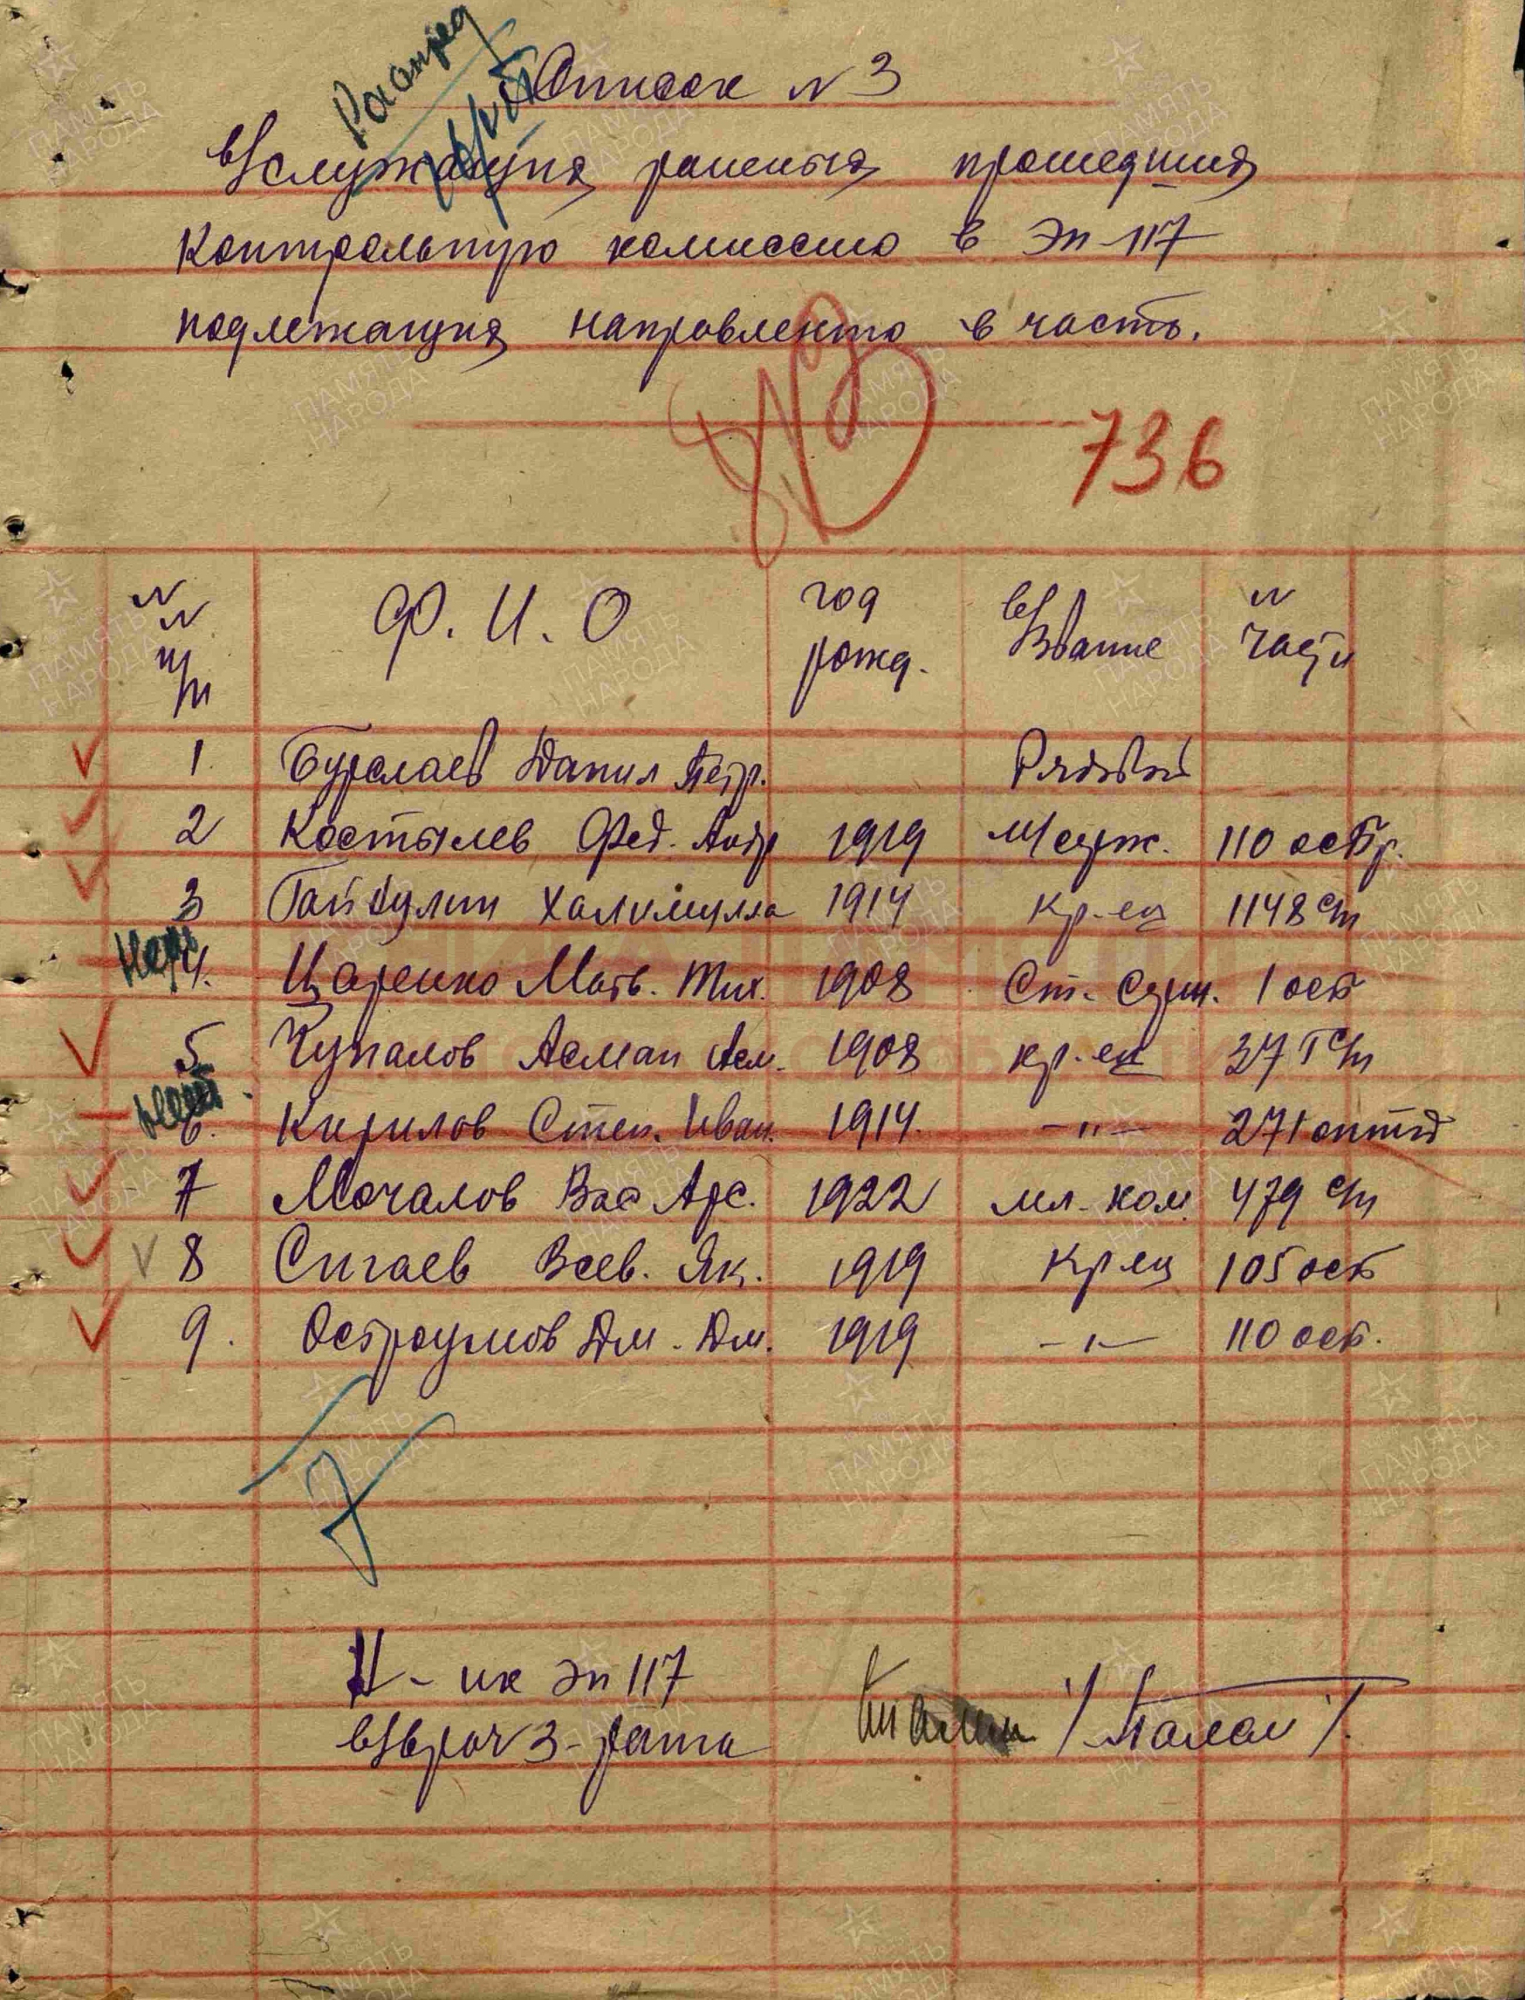 Список N 3
в/служащих раненых прошедших
контрольную комиссию в ЭП-117
подлежащих направлению в часть.
736
N N п/п Ф. И. О год рожд. в/звание N части
1. Бурлаев Данил Петр. Рядовой
2 Костылев Фед. Андр 1919 М/серж. 110 осбр.
3 Гайбулин Халимулла 1914 Кр-ец 1148 сп
4. Царенко Матв. Тих. 1908 Ст. серж. 1 осб
5 Чупалов Асман Асм. 1908 кр-ец 37 Гсп
6. Кирилов Степ. Иван. 1914. -"- 271 оптд
7 Мочалов Вас Арс. 1922 мл. ком. 479 сп
8 Сигаев Всев. Як. 1919 Кр ец 105 осб
9. Остроумов Дм. Дм. 1919 -"- 110 осб.
Н-ик ЭП 117
в/врач 3-ранга
ПАМЯТЬ НАРОДА